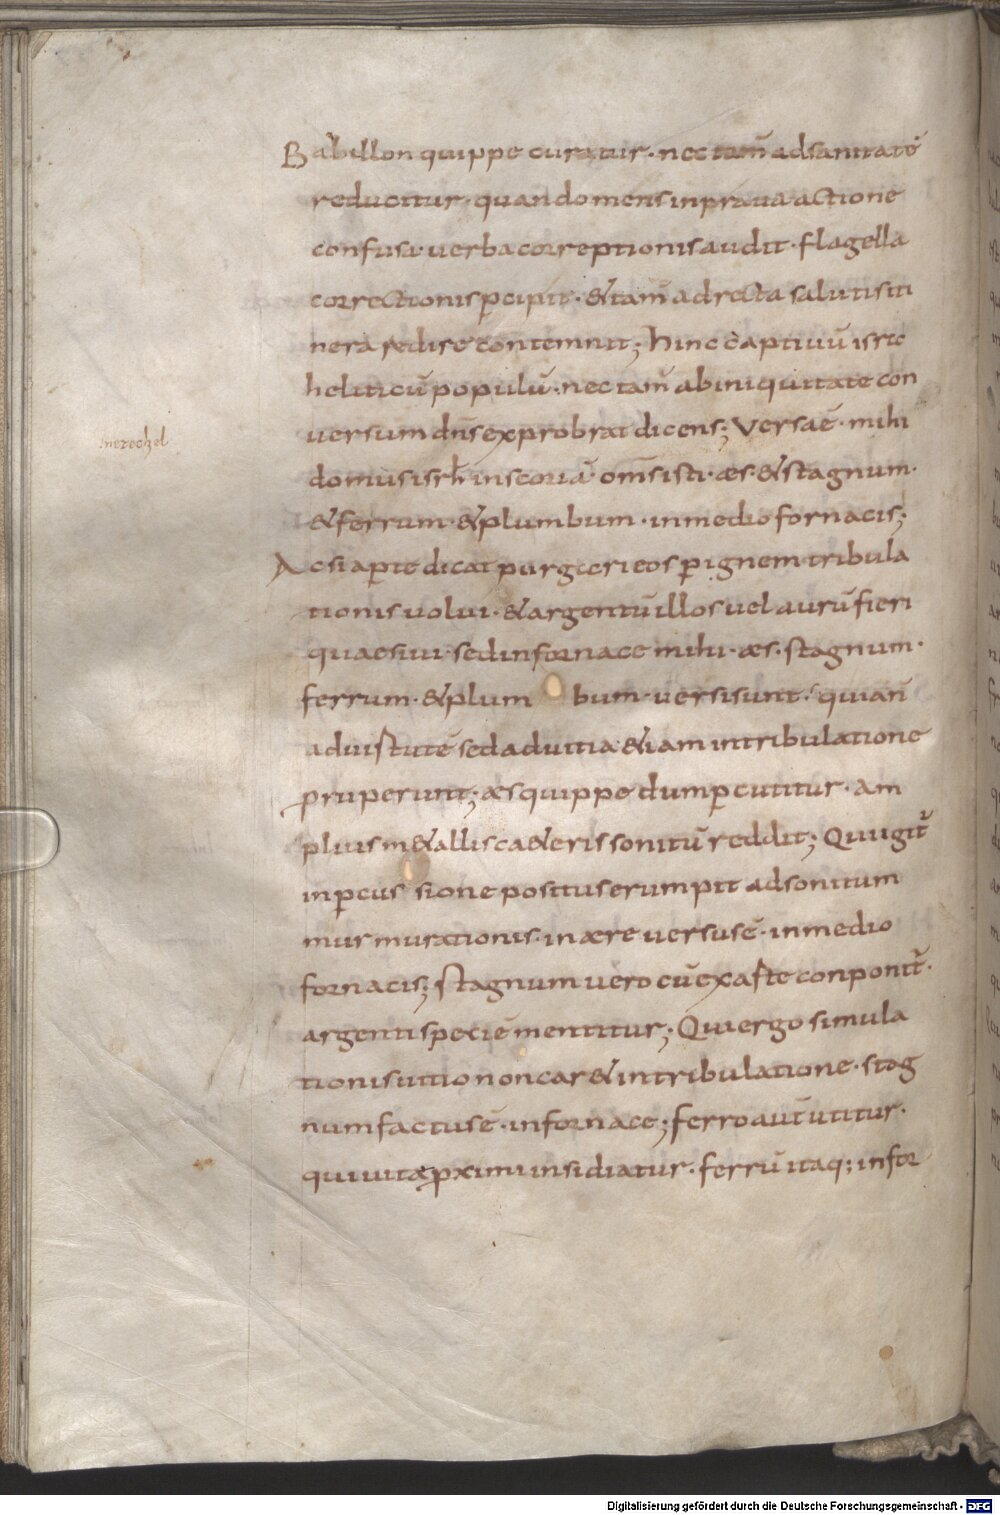 Babillon quippe curatur · nec tam̄ ad sanitatē
reducitur · quando mens in praua actione
confusa · uerba correptionis audit · flagella
correctionis ꝑcipit · & tam̄ ad recta salutis iti
nera redire contemnit; hinc captiuū isra
heliticū populū · nec tam̄ ab iniquitate con
uersum dn̄s exprobrat dicens; Versa ē · mihi
in ezechiel
domus isrł in scoriā · om̄s isti · æs · & stagnum ·
& ferrum · & plumbum · in medio fornacis;
Ac si aꝑte dicat purgari eos ꝑ ignem tribula
tionis uolui · & argentū illos uel aurū fieri
quaesiui · sed in fornace mihi · æs · stagnum ·
ferrum · & plum bum · uersi sunt · quia n̄
ad uirtutē sed ad uitia &iam in tribulatione
pruperunt; æs quippe dum ꝑcutitur · am
plius m&allis ca&eris sonitū reddit; Qui igit̄
in ꝑcus sione positus erumpit ad sonitum
murmurationis · in aere uersus ē · in medio
fornacis; stagnum uero cū ex arte conponit̄ ·
argenti speciē mentitur; Qui ergo simula
tionis uitio non car& in tribulatione · stag
num factus ē · in fornace; ferro aut̄ utitur ·
qui uitæ ꝓximi insidiatur · ferrū itaq; in for
Digitalisierung gefördert durch die Deutsche Forschungsgemeinschaft - DFG